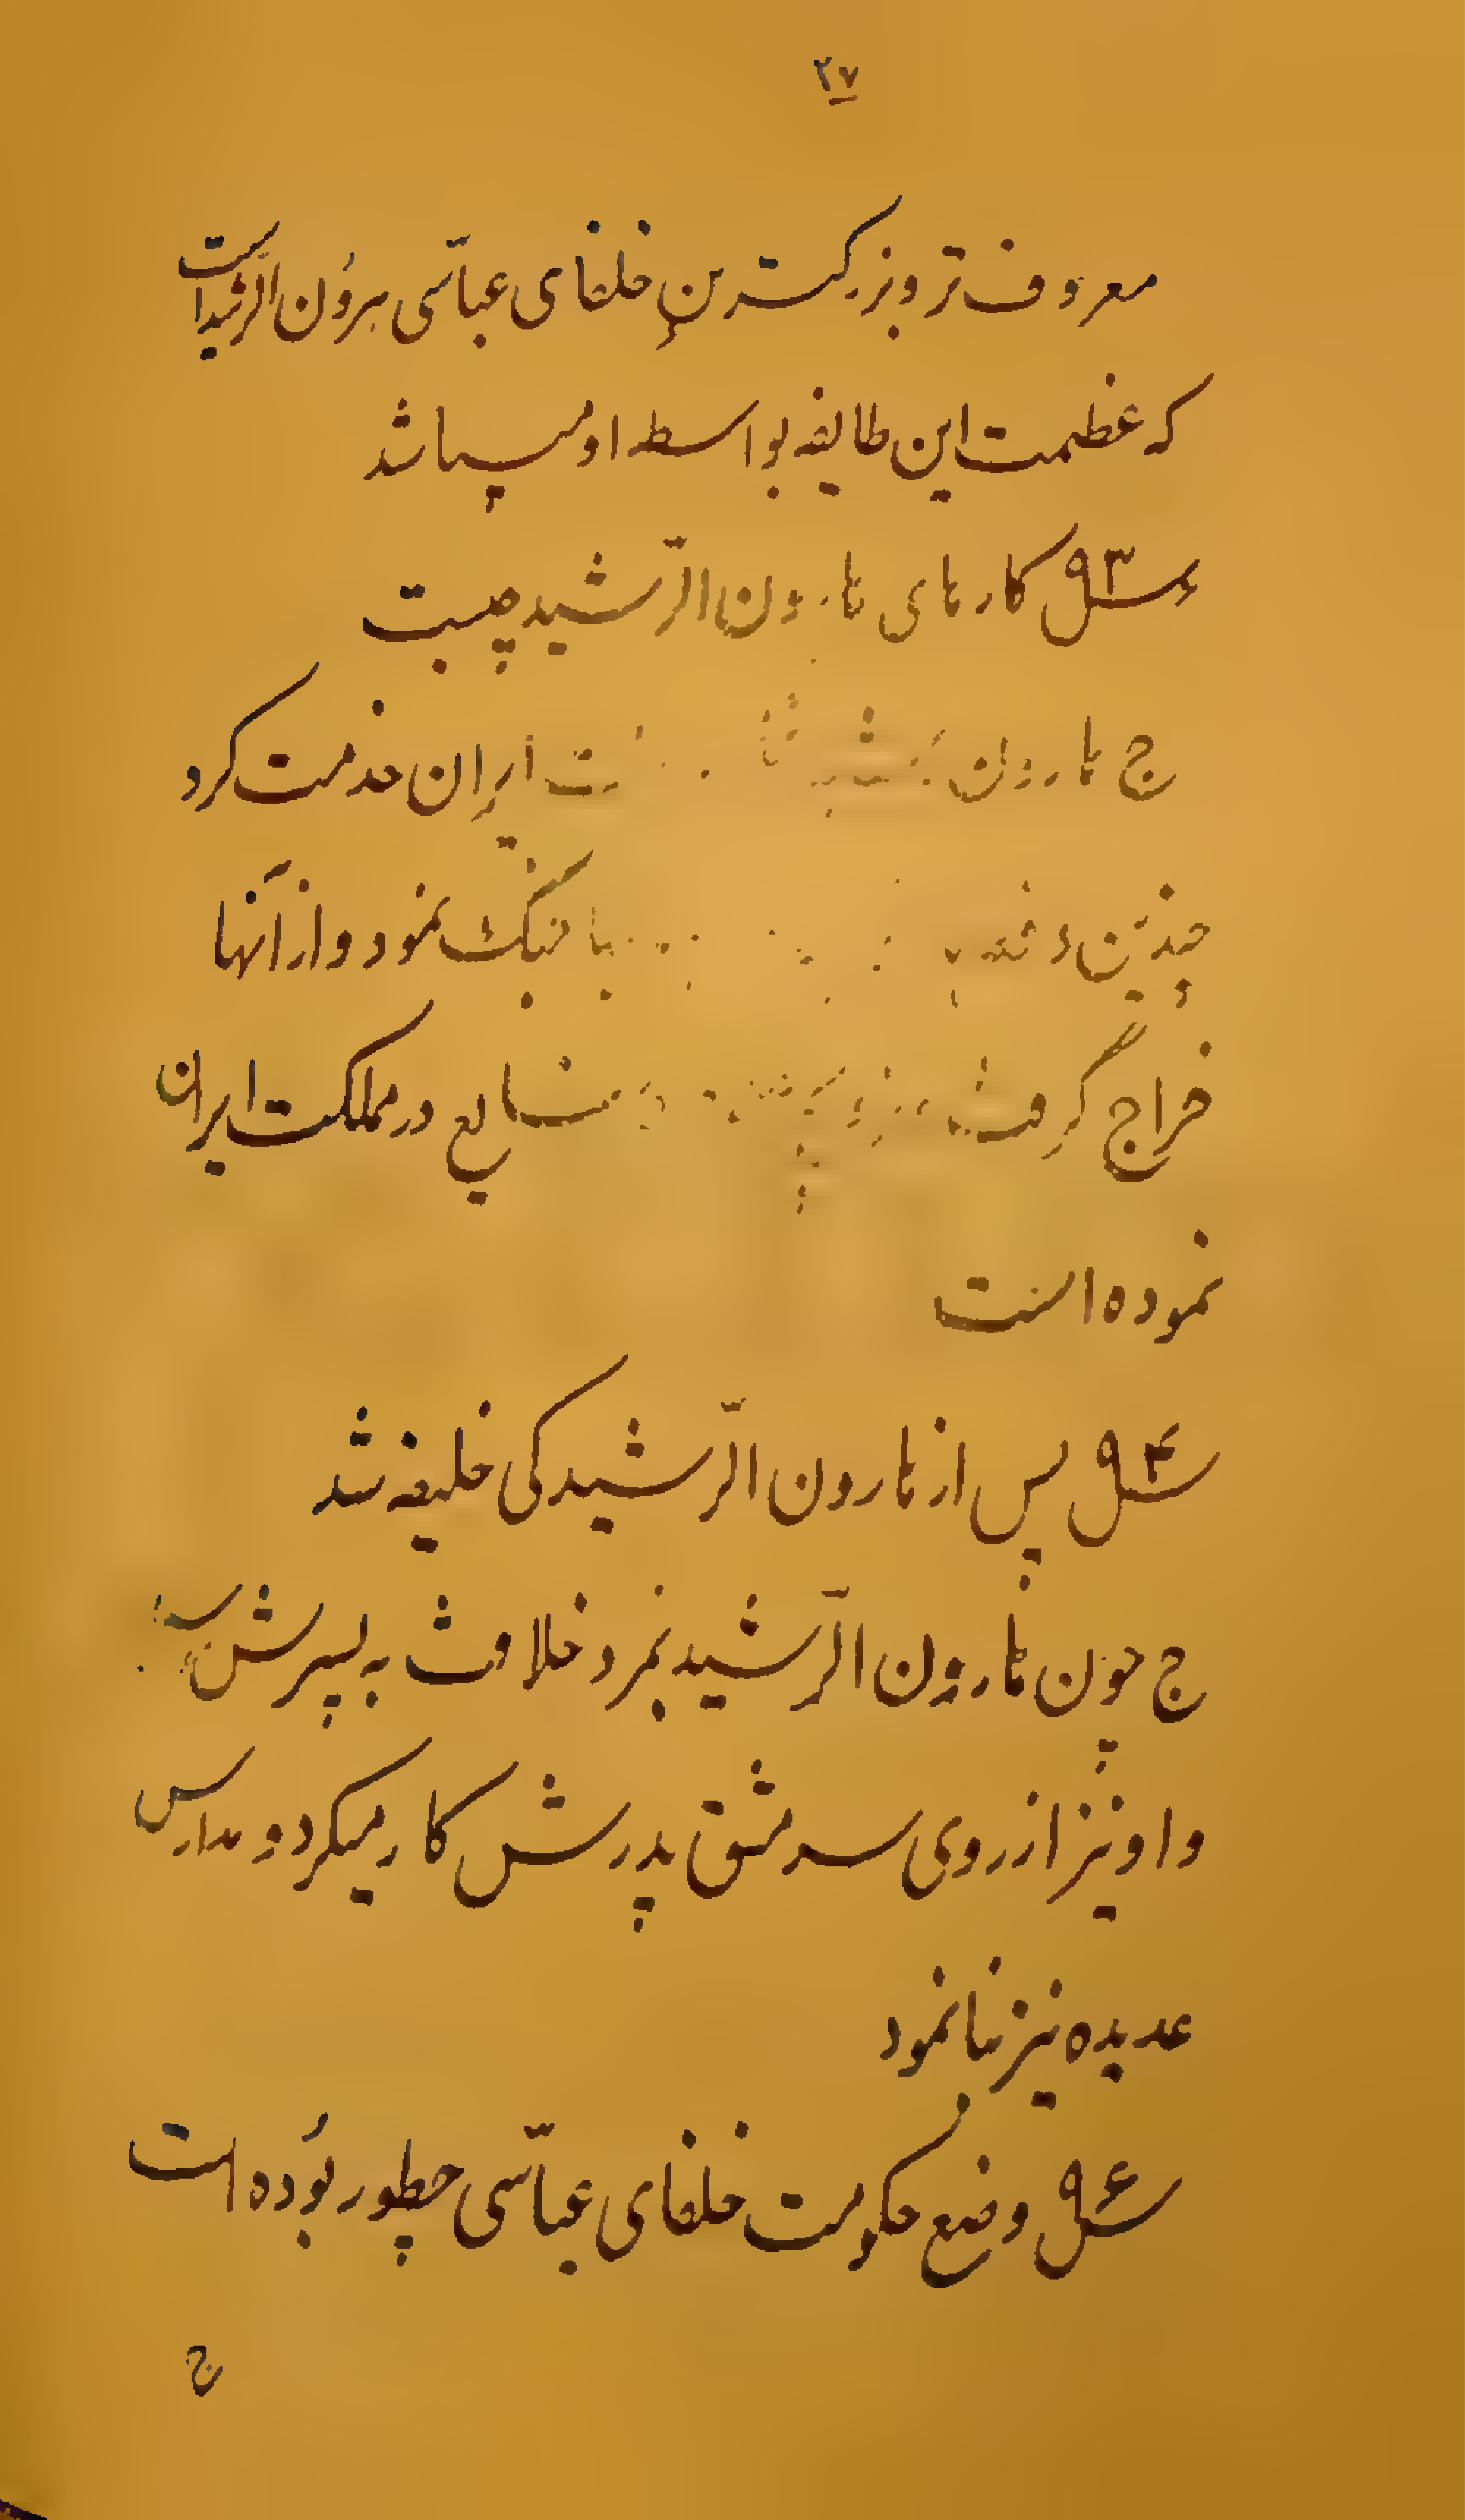 ۲۷
معروف‌تر و بزرگترین خلفای عباسی هرون الرّشید است
که عظمت این طایفه بواسطه او میباشد
س ۹۳ کارهای هارون الرّشید چیست
ج هارون ایران خدمت کرد
چندین دفعه جنگ نمود و از آنها
خراج گرفت صنایع در مملکت ایران
نموده است
س ۹۴ پس از هارون الرّشید کی خلیفه شد
ج چون هارون الرّشید بمرد خلافت به پسرش
و او نیز از روی سرمشق پدرش کار میکرد و مدارس
عدیده نیز بنا نمود
س ۹۶ وضع حکومت خلفای عبّاسی چطور بُوده است
ج